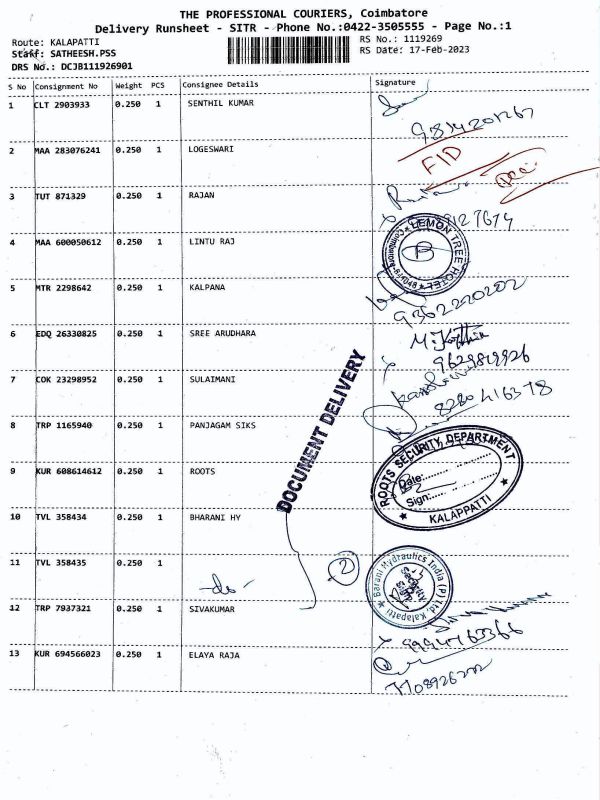 THE PROFESSIONAL COURIERS, Coimbatore
Delivery Runsheet - SITR - Phone No.:0422-3505555 - Page No.:1
Route: KALAPATTI
RS No.: 1119269
Staff: SATHEESH.PSS
RS Date: 17-Feb-2023
DRS No.: DCJB111926901
S No Consignment No Weight PCS Consignee Details Signature
1 CLT 2903933 0.250 1 SENTHIL KUMAR
2 MAA 283076241 0.250 1 LOGESWARI
FID
3 TUT 871329 0.250 1 RAJAN
4 MAA 600050612 0.250 1 LINTU RAJ
LEMON TREE HOTEL
Coimbatore-641048
B
5 MTR 2298642 0.250 1 KALPANA
9362220202
6 EDQ 26330825 0.250 1 SREE ARUDHARA
7 COK 23298952 0.250 1 SULAIMANI
8280416378
8 TRP 1165940 0.250 1 PANJAGAM SIKS
DOCUMENT DELIVERY
9 KUR 608614612 0.250 1 ROOTS
ROOTS SECURITY DEPARTMENT
Date:
Sign:
KALAPPATTI
10 TVL 358434 0.250 1 BHARANI HY
11 TVL 358435 0.250 1
-do-
2
Barani Hydraulics India (P) Ltd, Kalapatti
12 TRP 7937321 0.250 1 SIVAKUMAR
13 KUR 694566023 0.250 1 ELAYA RAJA